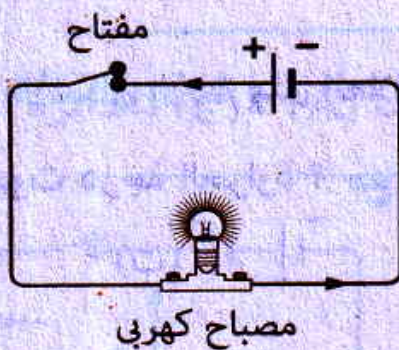 مفتاح
+ −
مصباح كهربى